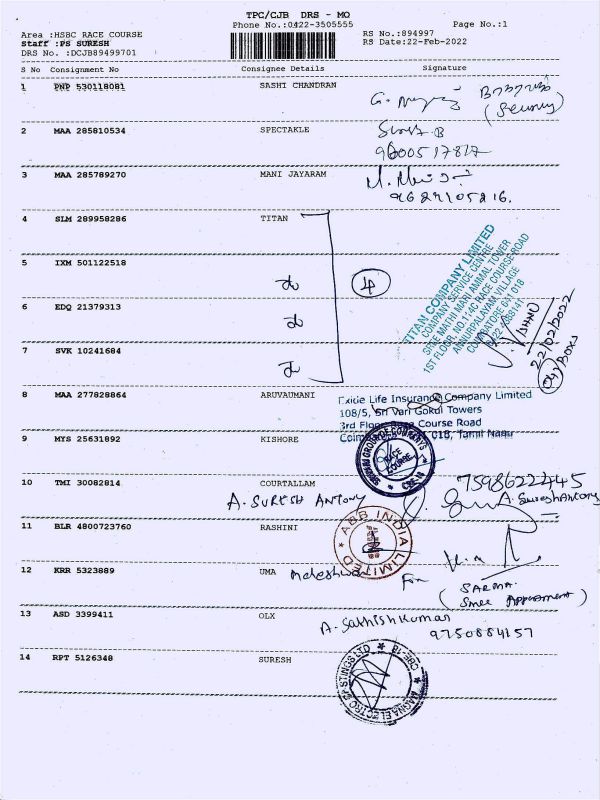 TPC/CJB DRS - MO
Phone No.:0422-3505555
Page No.:1
Area :HSBC RACE COURSE
RS No.:894997
Staff :PS SURESH
RS Date:22-Feb-2022
DRS No. :DCJB89499701
S No Consignment No Consignee Details Signature
1 PNP 530118081 SASHI CHANDRAN
2 MAA 285810534 SPECTAKLE
3 MAA 285789270 MANI JAYARAM
4 SLM 289958286 TITAN
TITAN COMPANY LIMITED
COMPANY SERVICE CENTRE
SREE MATHI MARI AMMAL TOWER
1ST FLOOR, NO 1:4C RACE COURSE ROAD
COIMBATORE 641 018
5 IXM 501122518
4
6 EDQ 21379313
22/02/2022
7 SVK 10241684
8 MAA 277828864 ARUVAUMANI
Exide Life Insurance Company Limited
108/5, Sri Vari Gokul Towers
3rd Floor Race Course Road
018, Tamil Nadu
9 MYS 25631892 KISHORE
RACE COURSE
10 TMI 30082814 COURTALLAM
A. SURESH ANTONY
7598622445
A. Suresh Antony
11 BLR 4800723760 RASHINI
ABB INDIA LIMITED
12 KRR 5323889 UMA
For
SARMA
13 ASD 3399411 OLX
A. Sathish Kumar
9750884157
14 RPT 5126348 SURESH
MAGNA ELECTRO CASTINGS LTD CBE-18